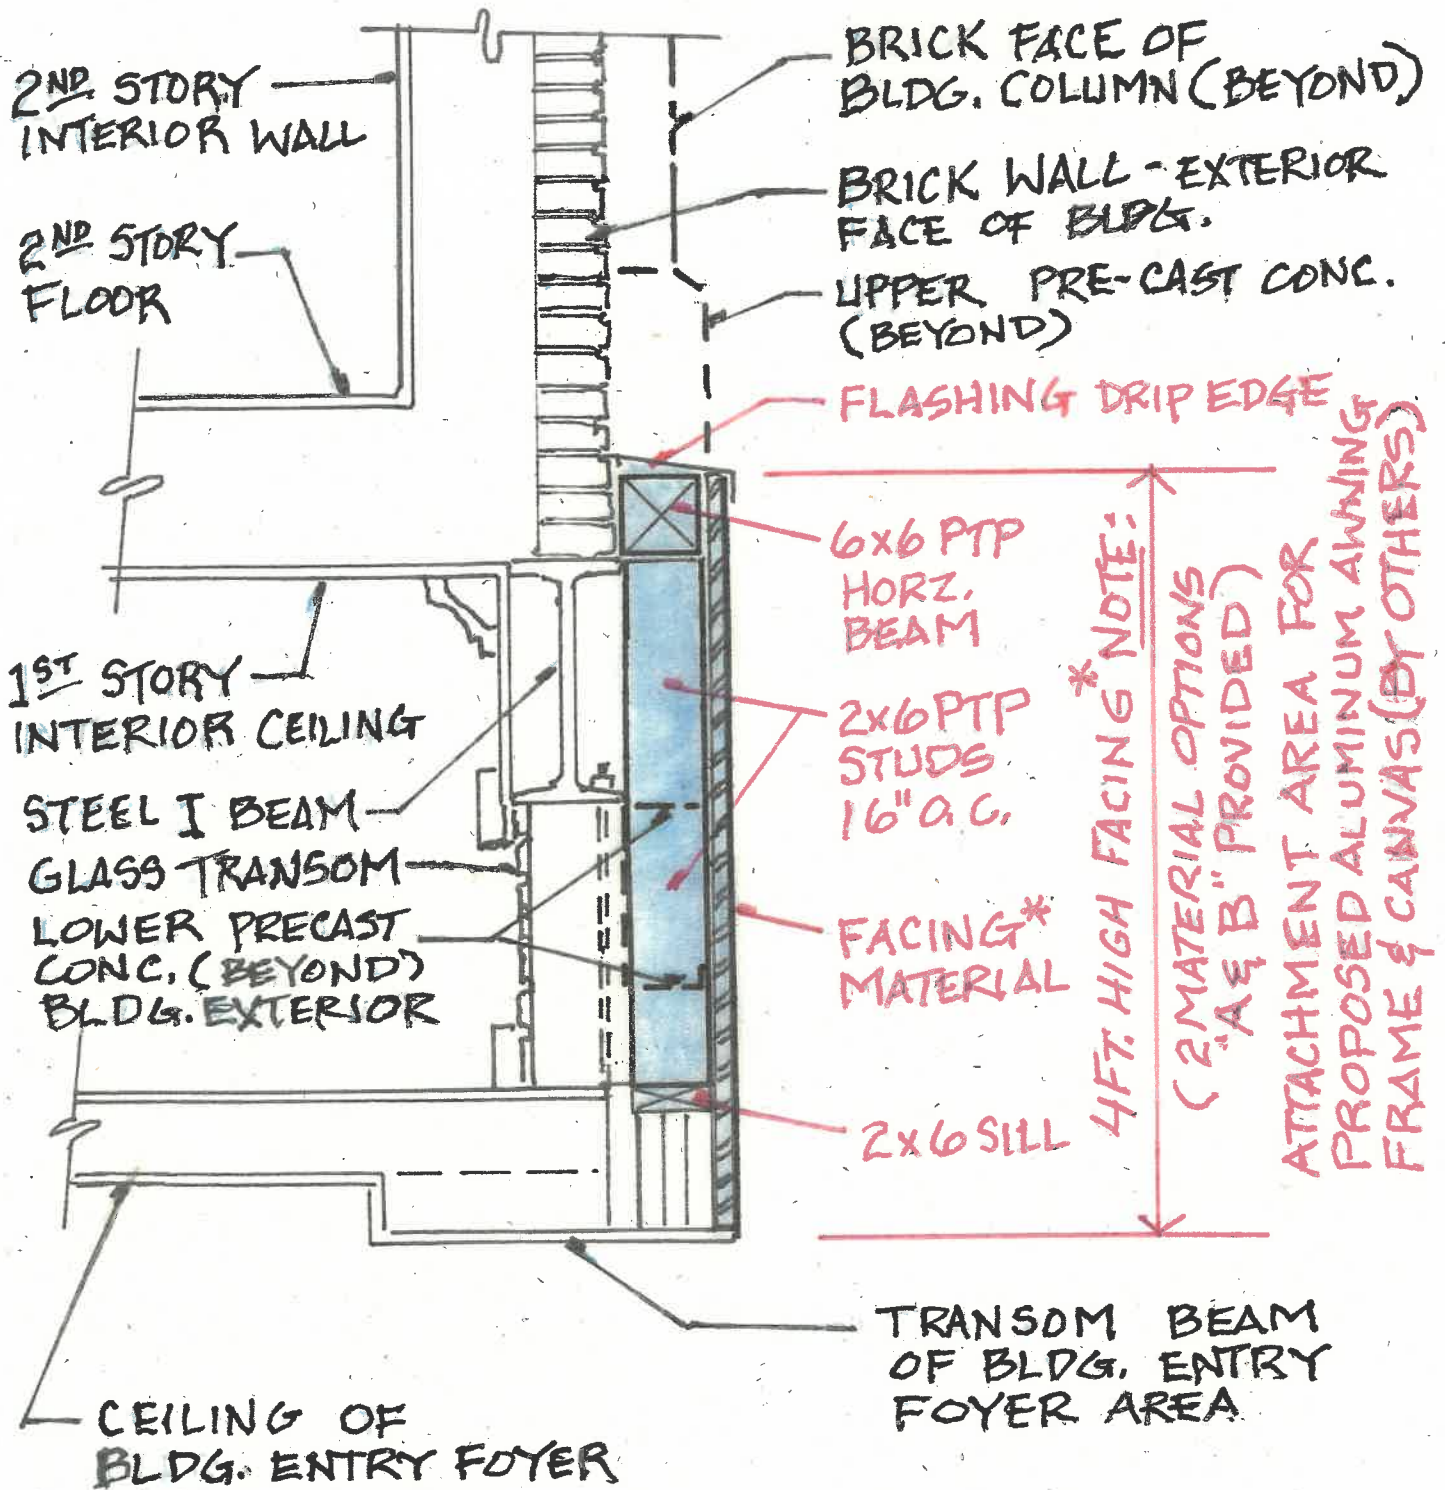 2ND STORY
INTERIOR WALL
2ND STORY
FLOOR
1ST STORY
INTERIOR CEILING
STEEL I BEAM
GLASS TRANSOM
LOWER PRECAST
CONC. (BEYOND)
BLDG. EXTERIOR
CEILING OF
BLDG. ENTRY FOYER
BRICK FACE OF
BLDG. COLUMN (BEYOND)
BRICK WALL - EXTERIOR
FACE OF BLDG.
UPPER PRE-CAST CONC.
(BEYOND)
FLASHING DRIP EDGE
6x6 PTP
HORZ.
BEAM
2x6 PTP
STUDS
16" O.C.
FACING*
MATERIAL
2x6 SILL
4FT. HIGH FACING* NOTE:
(2 MATERIAL OPTIONS
"A & B" PROVIDED)
ATTACHMENT AREA FOR
PROPOSED ALUMINUM AWNING
FRAME & CANVAS (BY OTHERS)
TRANSOM BEAM
OF BLDG. ENTRY
FOYER AREA